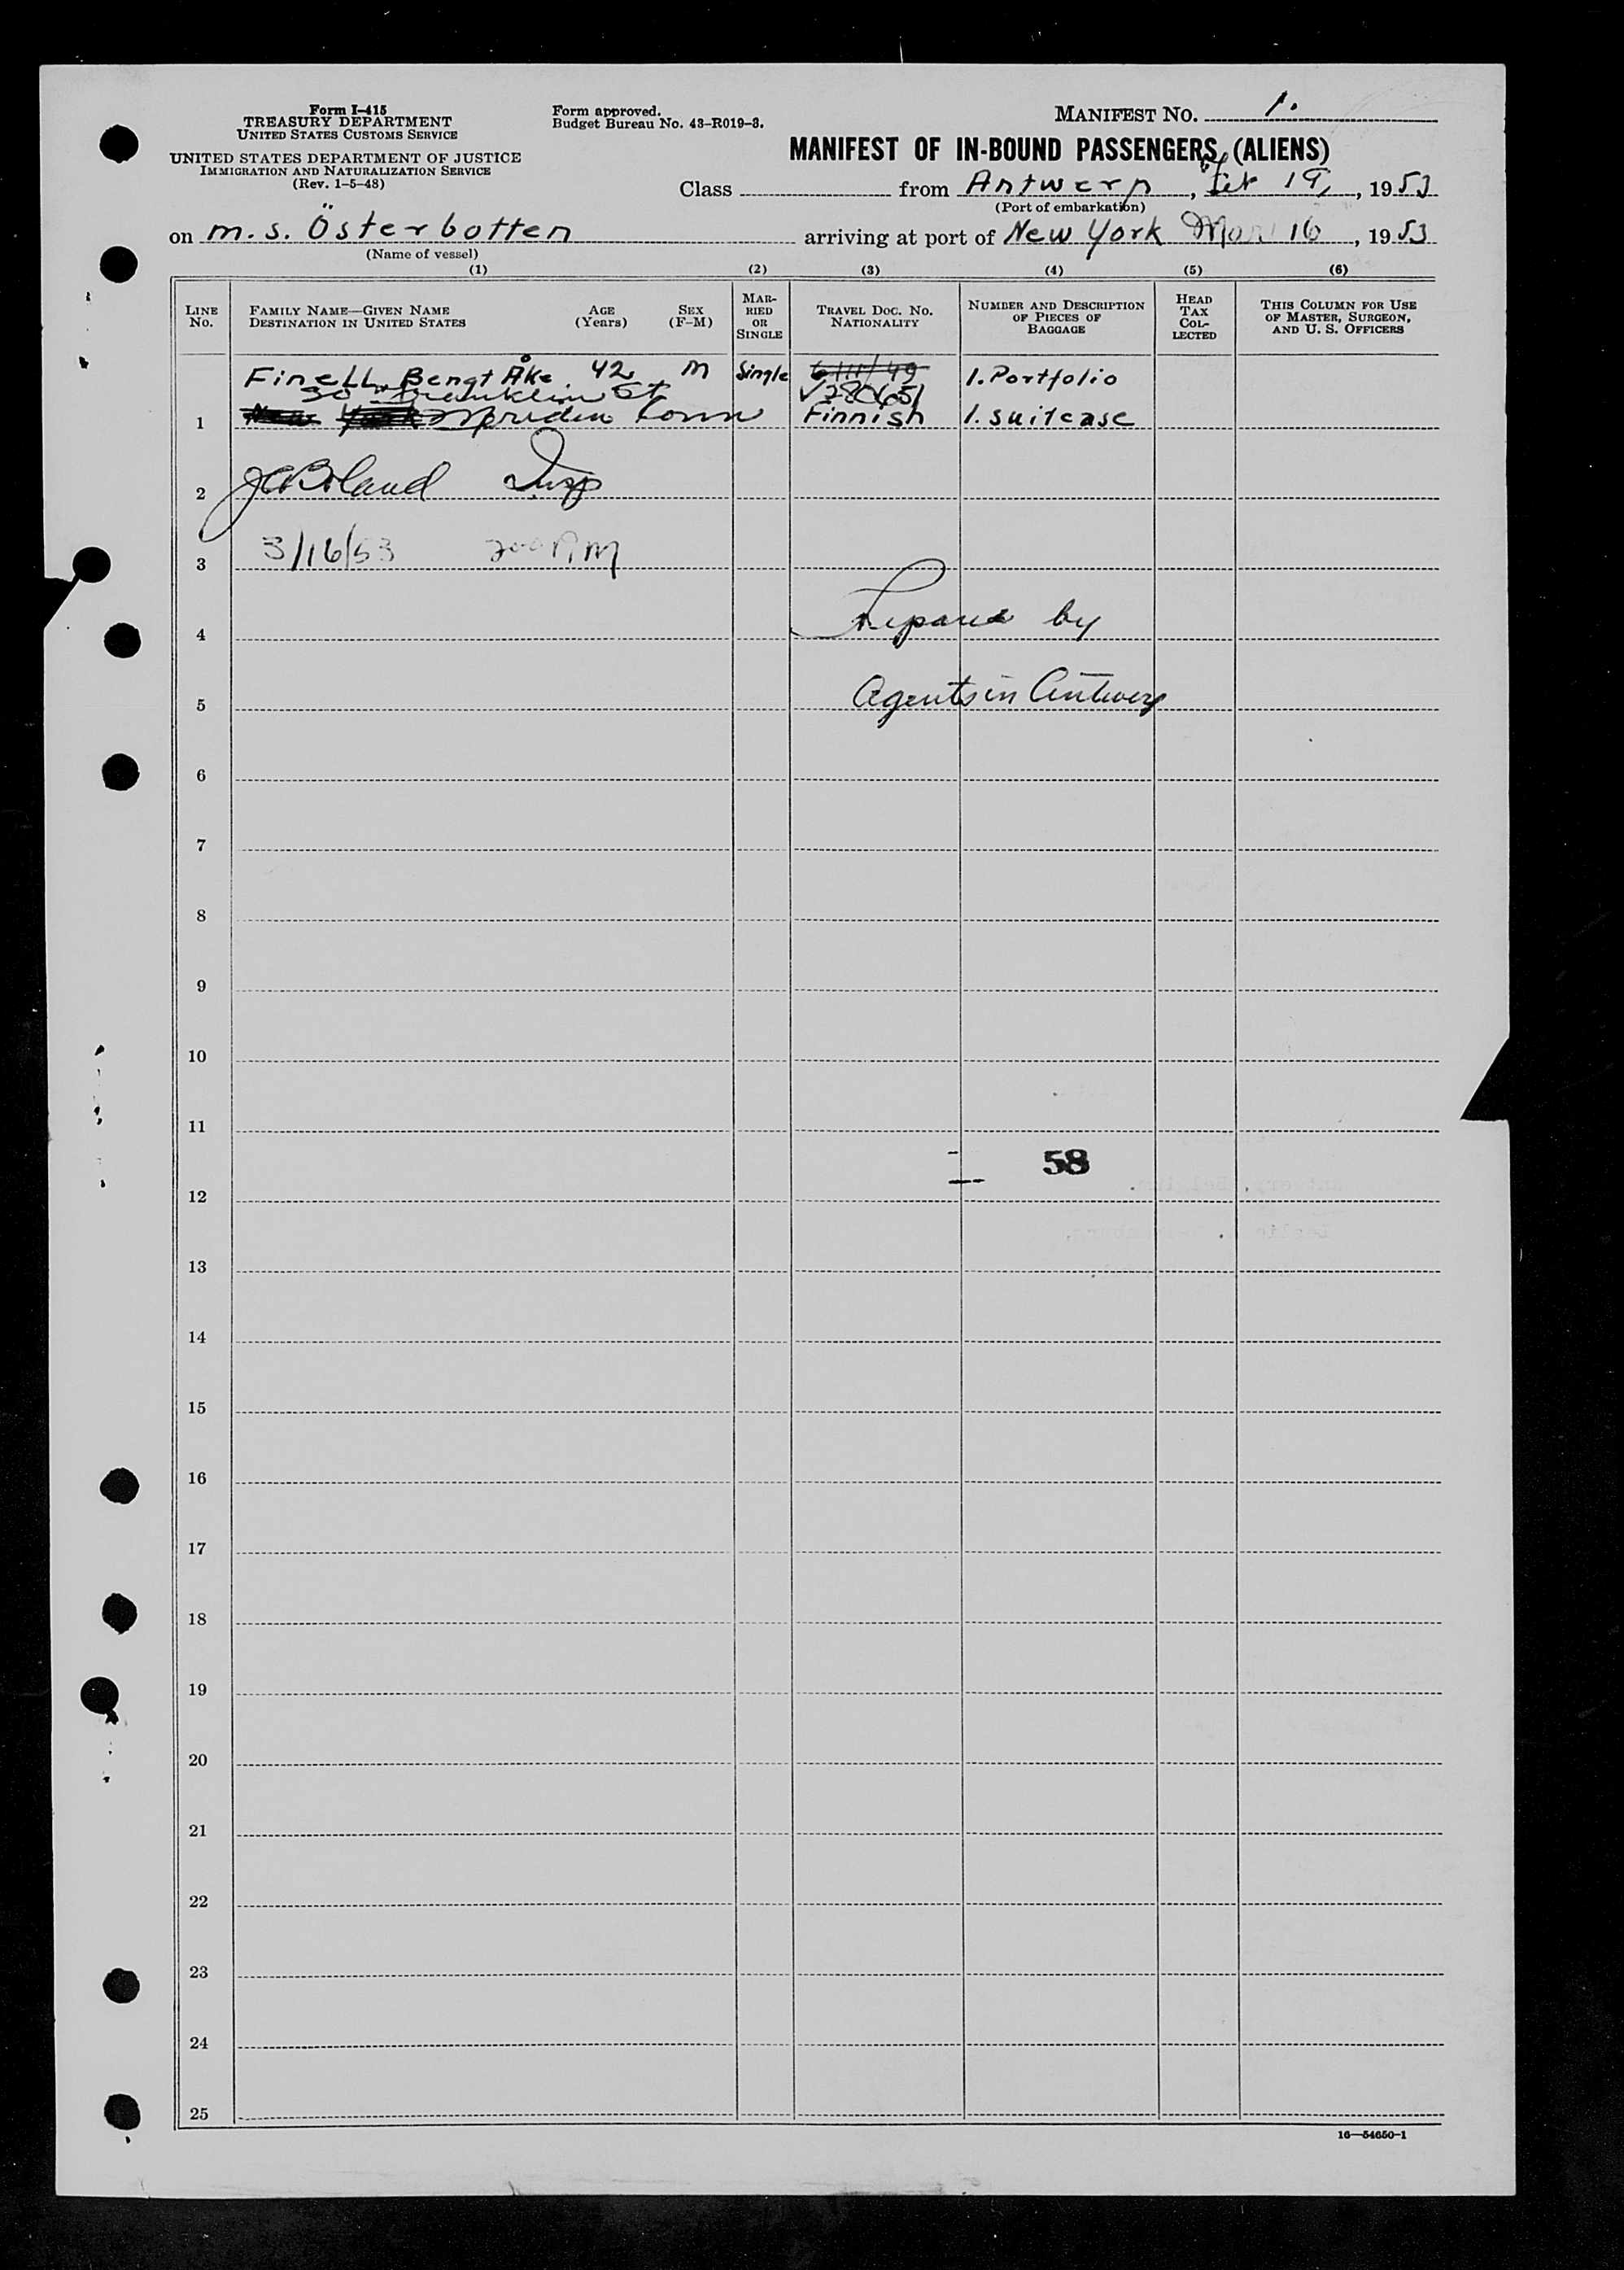 Form I-415
TREASURY DEPARTMENT
UNITED STATES CUSTOMS SERVICE
UNITED STATES DEPARTMENT OF JUSTICE
IMMIGRATION AND NATURALIZATION SERVICE
(Rev. 1-5-48)
Form approved.
Budget Bureau No. 43-R019-3.
MANIFEST NO. 1.
MANIFEST OF IN-BOUND PASSENGERS (ALIENS)
Class from Antwerp, Feb 19, 1953
(Port of embarkation)
on m.s. Österbotten arriving at port of New York Mar 16, 1953
(Name of vessel)
(1) (2) (3) (4) (5) (6)
LINE NO.
FAMILY NAME—GIVEN NAME
DESTINATION IN UNITED STATES
AGE (Years)
SEX (F-M)
MARRIED OR SINGLE
TRAVEL DOC. NO.
NATIONALITY
NUMBER AND DESCRIPTION OF PIECES OF BAGGAGE
HEAD TAX COLLECTED
THIS COLUMN FOR USE OF MASTER, SURGEON, AND U. S. OFFICERS
Finell, Bengt Åke 42 M Single 1. Portfolio
30 Franklin St
1 New York Conn Finnish 1. suitcase
2 Insp
3 3/16/53 PM
4 by
5 Agents in Antwerp
6
7
8
9
10
11
58
12
13
14
15
16
17
18
19
20
21
22
23
24
25
16—54650-1